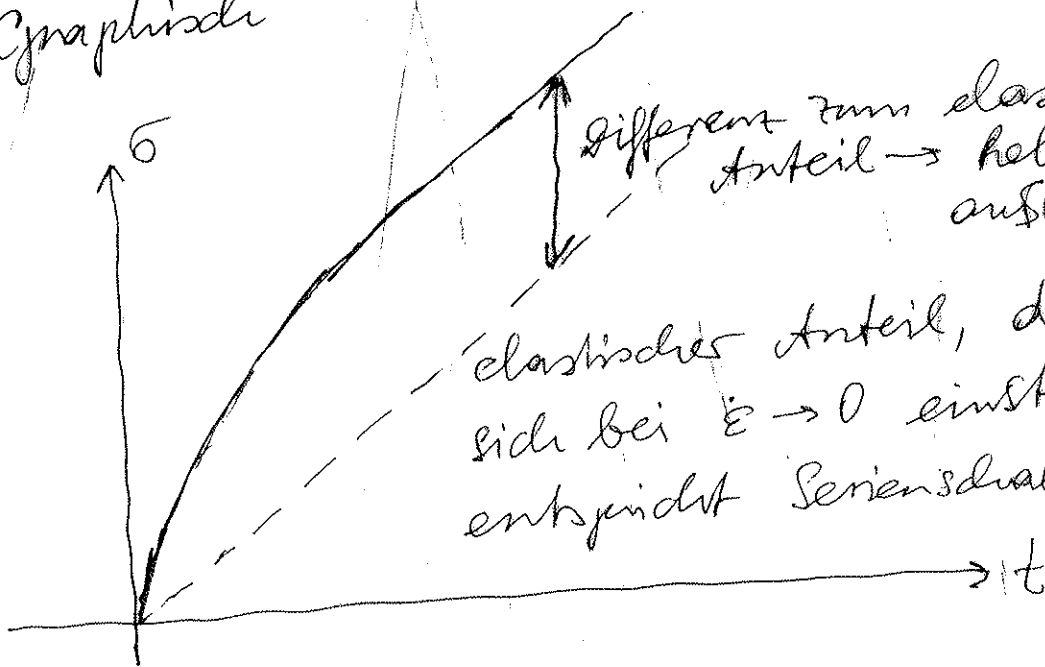 Graphisch
σ
Differenz zum elas
Anteil → hel
auß
elastischer Anteil, d
sich bei ε̇ → 0 einst
entspricht Seriensch
t